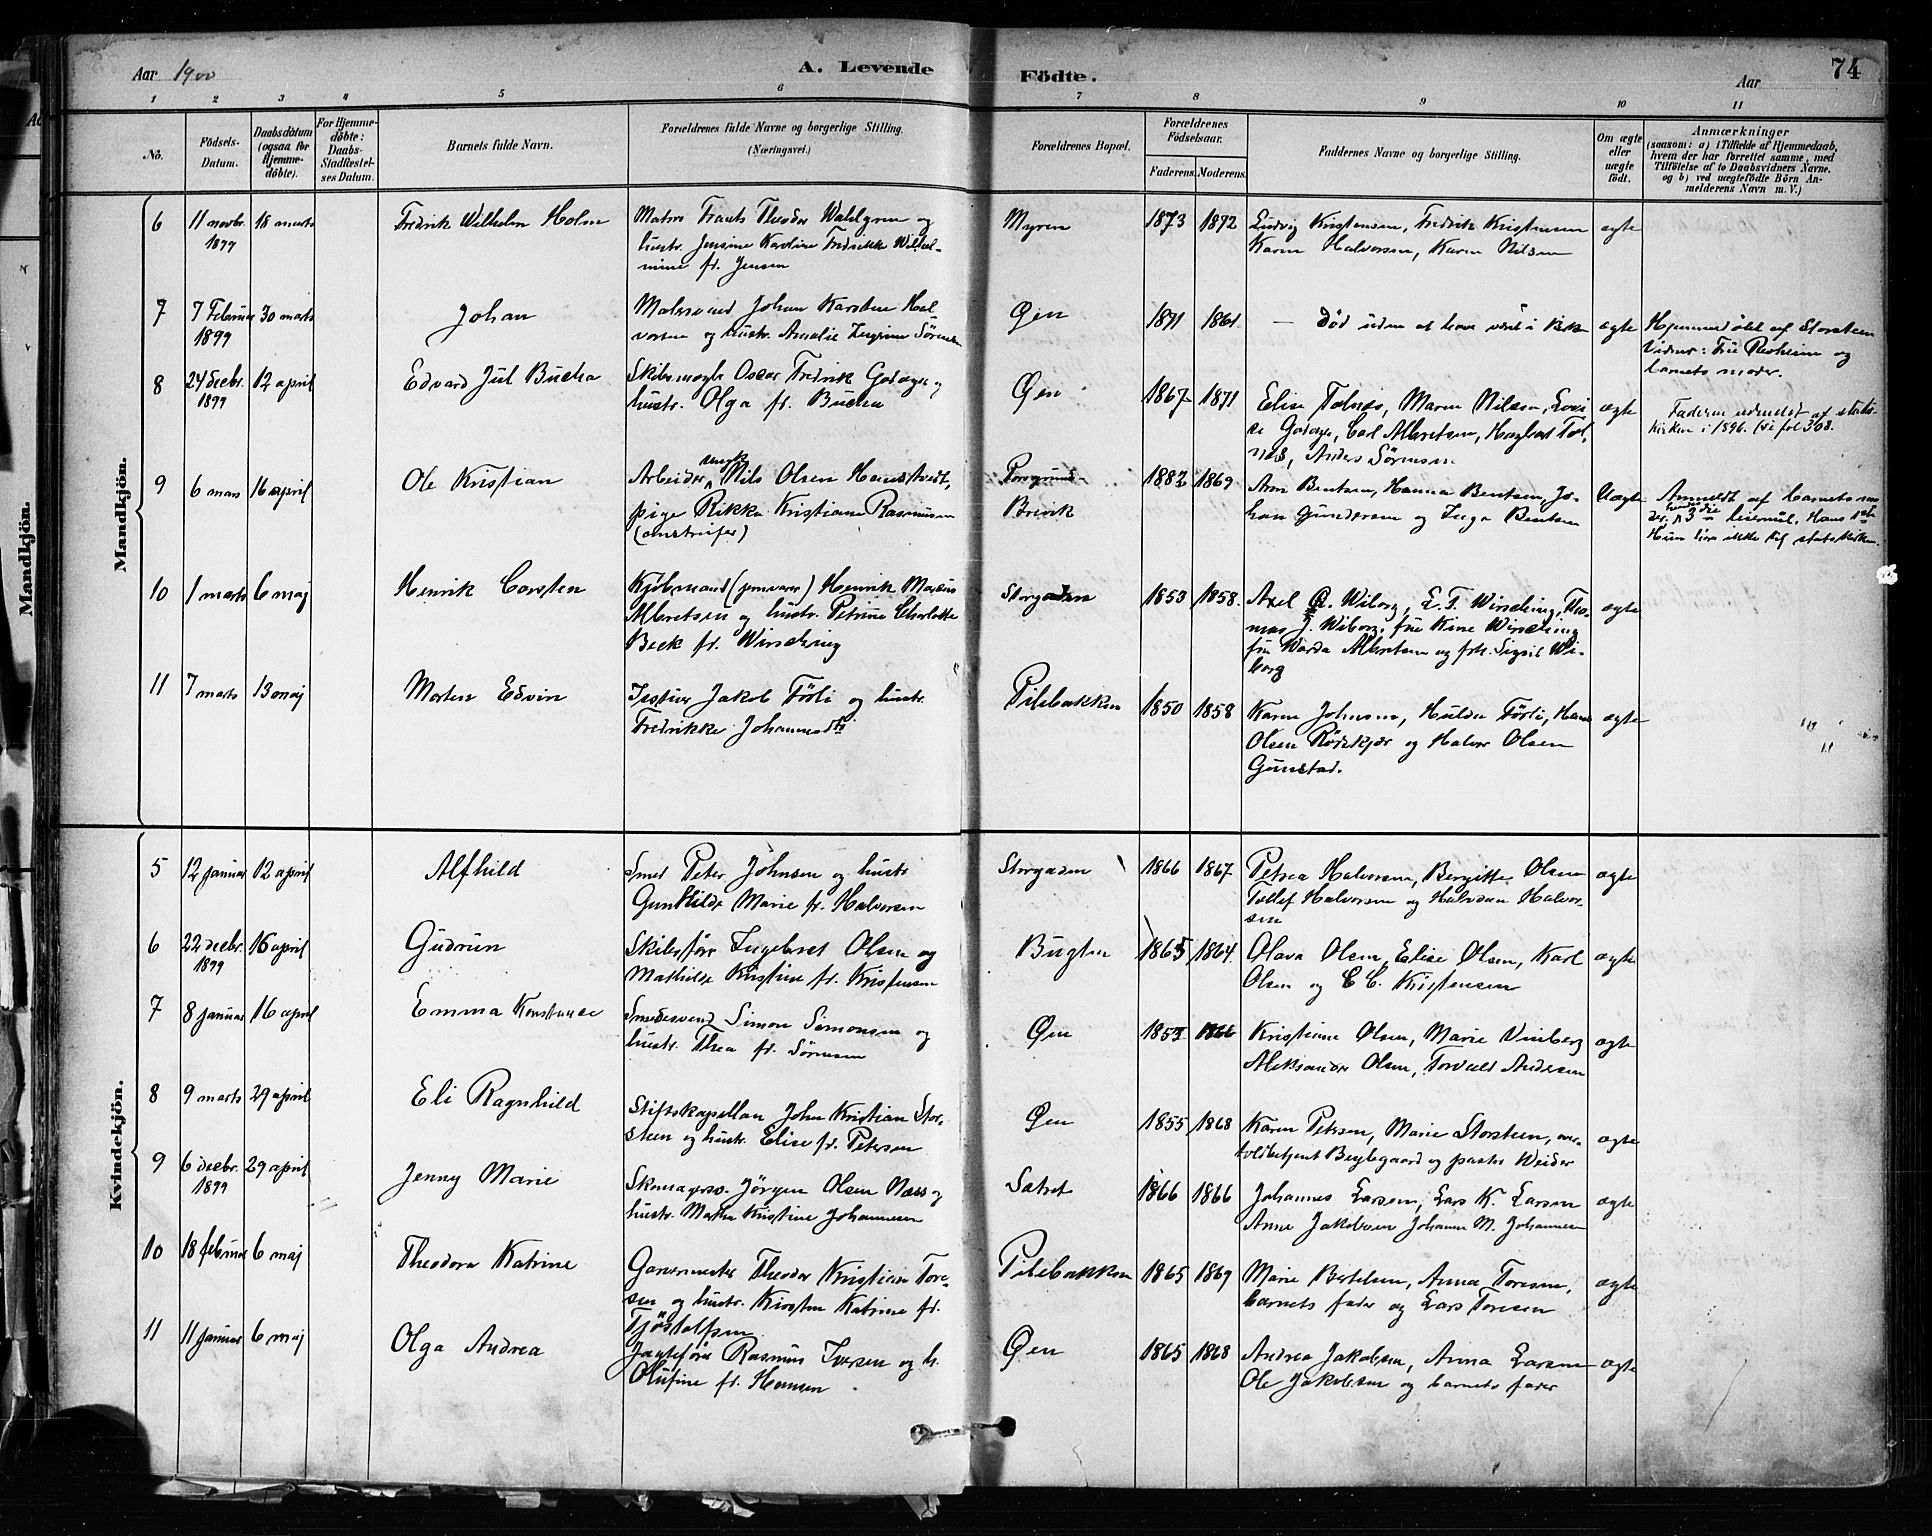 Aar 1900 A. Levende Födte. Aar 74
1 2 3 4 5 6 7 8 9 10 11
No. Födsels-Datum. Daabsdatum (ogsaa for Hjemmedöbte). For Hjemmedöbte: Daabs-Stadfæstelses Datum. Barnets fulde Navn. Forældrenes fulde Navne og borgerlige Stilling. (Næringsvei.) Forældrenes Bopæl. Forældrenes Födselsaar. Faderens. Moderens. Faddernes Navne og borgerlige Stilling. Om ægte eller uægte födt. Anmærkninger (saasom: a) i Tilfælde af Hjemmedaab, hvem der har forrettet samme, med Tilföielse af to Daabsvidners Navne, og b) ved uægtefödte Börn Anmelderens Navn m. V.)
Mandkjön.
Mandkjön.
6 11 novbr. 1899 18 marts Fredrik Wilhelm Holm
Frants Theodor Wahlgren og
hustr. Jensine Karoline Fredrikke Wilhel-
mine f. Jensen
Myren 1873 1872
Ludvig Kristensen, Fredrik Kristensen
Karen Halvorsen, Karen Nilsen
ægte
7 7 Februar 1899 30 marts Johan
Malersvend Johan Karsten Hal-
vorsen og hustr. Amalie Ingrine Sörensen
Öen 1871 1861
— Död uden at have været i Kirke
ægte
Hjemmedöbt af Storsteen
Vidner: Fru Resheim og
barnets moder.
8 24 decbr. 1899 12 april Edvard Jul Bucha
Oscar Fredrik Godager og
hustr. Olga f. Bucha
Öen 1867 1871
Elise Tolnæs, Maren Nilsen, Lovi-
se Godager, Carl Albretsen, Hagbart Tol-
næs, Anders Sörensen
ægte
Faderen udmeldt af stats-
kirken i 1896. (se fol 308.
9 6 mars 16 april Ole Kristian
Arbeider Nils Olsen
pige Rikka Kristiane Rasmussen
Porsgrund-
Brevik
1882 1869
Aron Bentsen, Hanna Bentsen, Jo-
han Gundersen og Inga Bentsen
Uægte
Anmeldt af barnets mo-
der, hendes 3die leiermål, Hans 1ste
Hun hörer ikke til statskirken.
10 1 marts 6 maj Henrik Carsten
Kjöbmand (jernvarer) Henrik Marius
Albretsen og hustr. Petrine Charlotte
Beck f. Wirsching
Storgaden 1853 1858.
Axel C. Wiborg, E. F. Wirsching, Tho-
mas J. Wiborg, fru Kine Wirsching
fru Warda Albretsen og frk. Sigrid Wi-
borg
ægte
11 7 marts 13 maj Morten Edvin
Jakob Försli og hustr.
Fredrikke Johannesdtr
Pilebakken 1850 1858
Karen Johnsen, Hulda Försli, Hans
Olsen Rödskjær og Halvor Olsen
Gunstad.
ægte
Kvindekjön.
5 12 januar 12 april Alfhild
Smed Peter Johnsen og hustr
Gunhilde Marie f. Halvorsen
Storgaden 1866 1867
Petrea Halvorsen, Bergitte Olsen
Tollef Halvorsen og Halvdan Halvor-
sen
ægte
6 22 decbr. 1899 16 april Gudrun
Skibsförer Ingebret Olsen og
Mathilde Kristine f. Kristensen
Bugten 1865 1864.
Olava Olsen, Elise Olsen, Karl
Olsen og C C. Kristensen
ægte
7 8 januar 16 april Emma Konstance
Smedesvend Simon Simonsen og
hustr. Thea f. Sörensen
Öen 1853 1866
Kristiane Olsen, Marie Vinberg
Aleksander Olsen, Torvald Andersen
ægte
8 9 marts 29 april Eli Ragnhild
Stiftskapellan John Kristian Stor-
steen og hustr. Elise f. Petersen
Öen 1855 1868
Karen Petersen, Marie Storsteen, over-
toldbetjent Beylegaard og pastor Weider
ægte
9 6 decbr. 1899 29 april Jenny Marie
Skomagersv. Jörgen Olsen Næss og
hustr. Maren Kristine Johannesen
Satret 1866 1866
Johannes Larsen, Lars K. Larsen
Anne Jakobsen Johanne M. Johannesen
ægte
10 18 februar 6 maj Theodora Katrine
Garvermester Theodor Kristian Tore-
sen og hustr. Kirsten Katrine f.
Tjöstolfsen
Pilebakken 1865 1869
Marie Bertelsen, Anna Toresen,
barnets fader og Lars Toresen
ægte
11 11 januar 6 maj Olga Andrea
Jagtförer Rasmus Iversen og h.
Olufine f. Hansen
Öen 1865 1868
Andrea Jakobsen, Anna Larsen
Ole Jakobsen og barnets fader
ægte